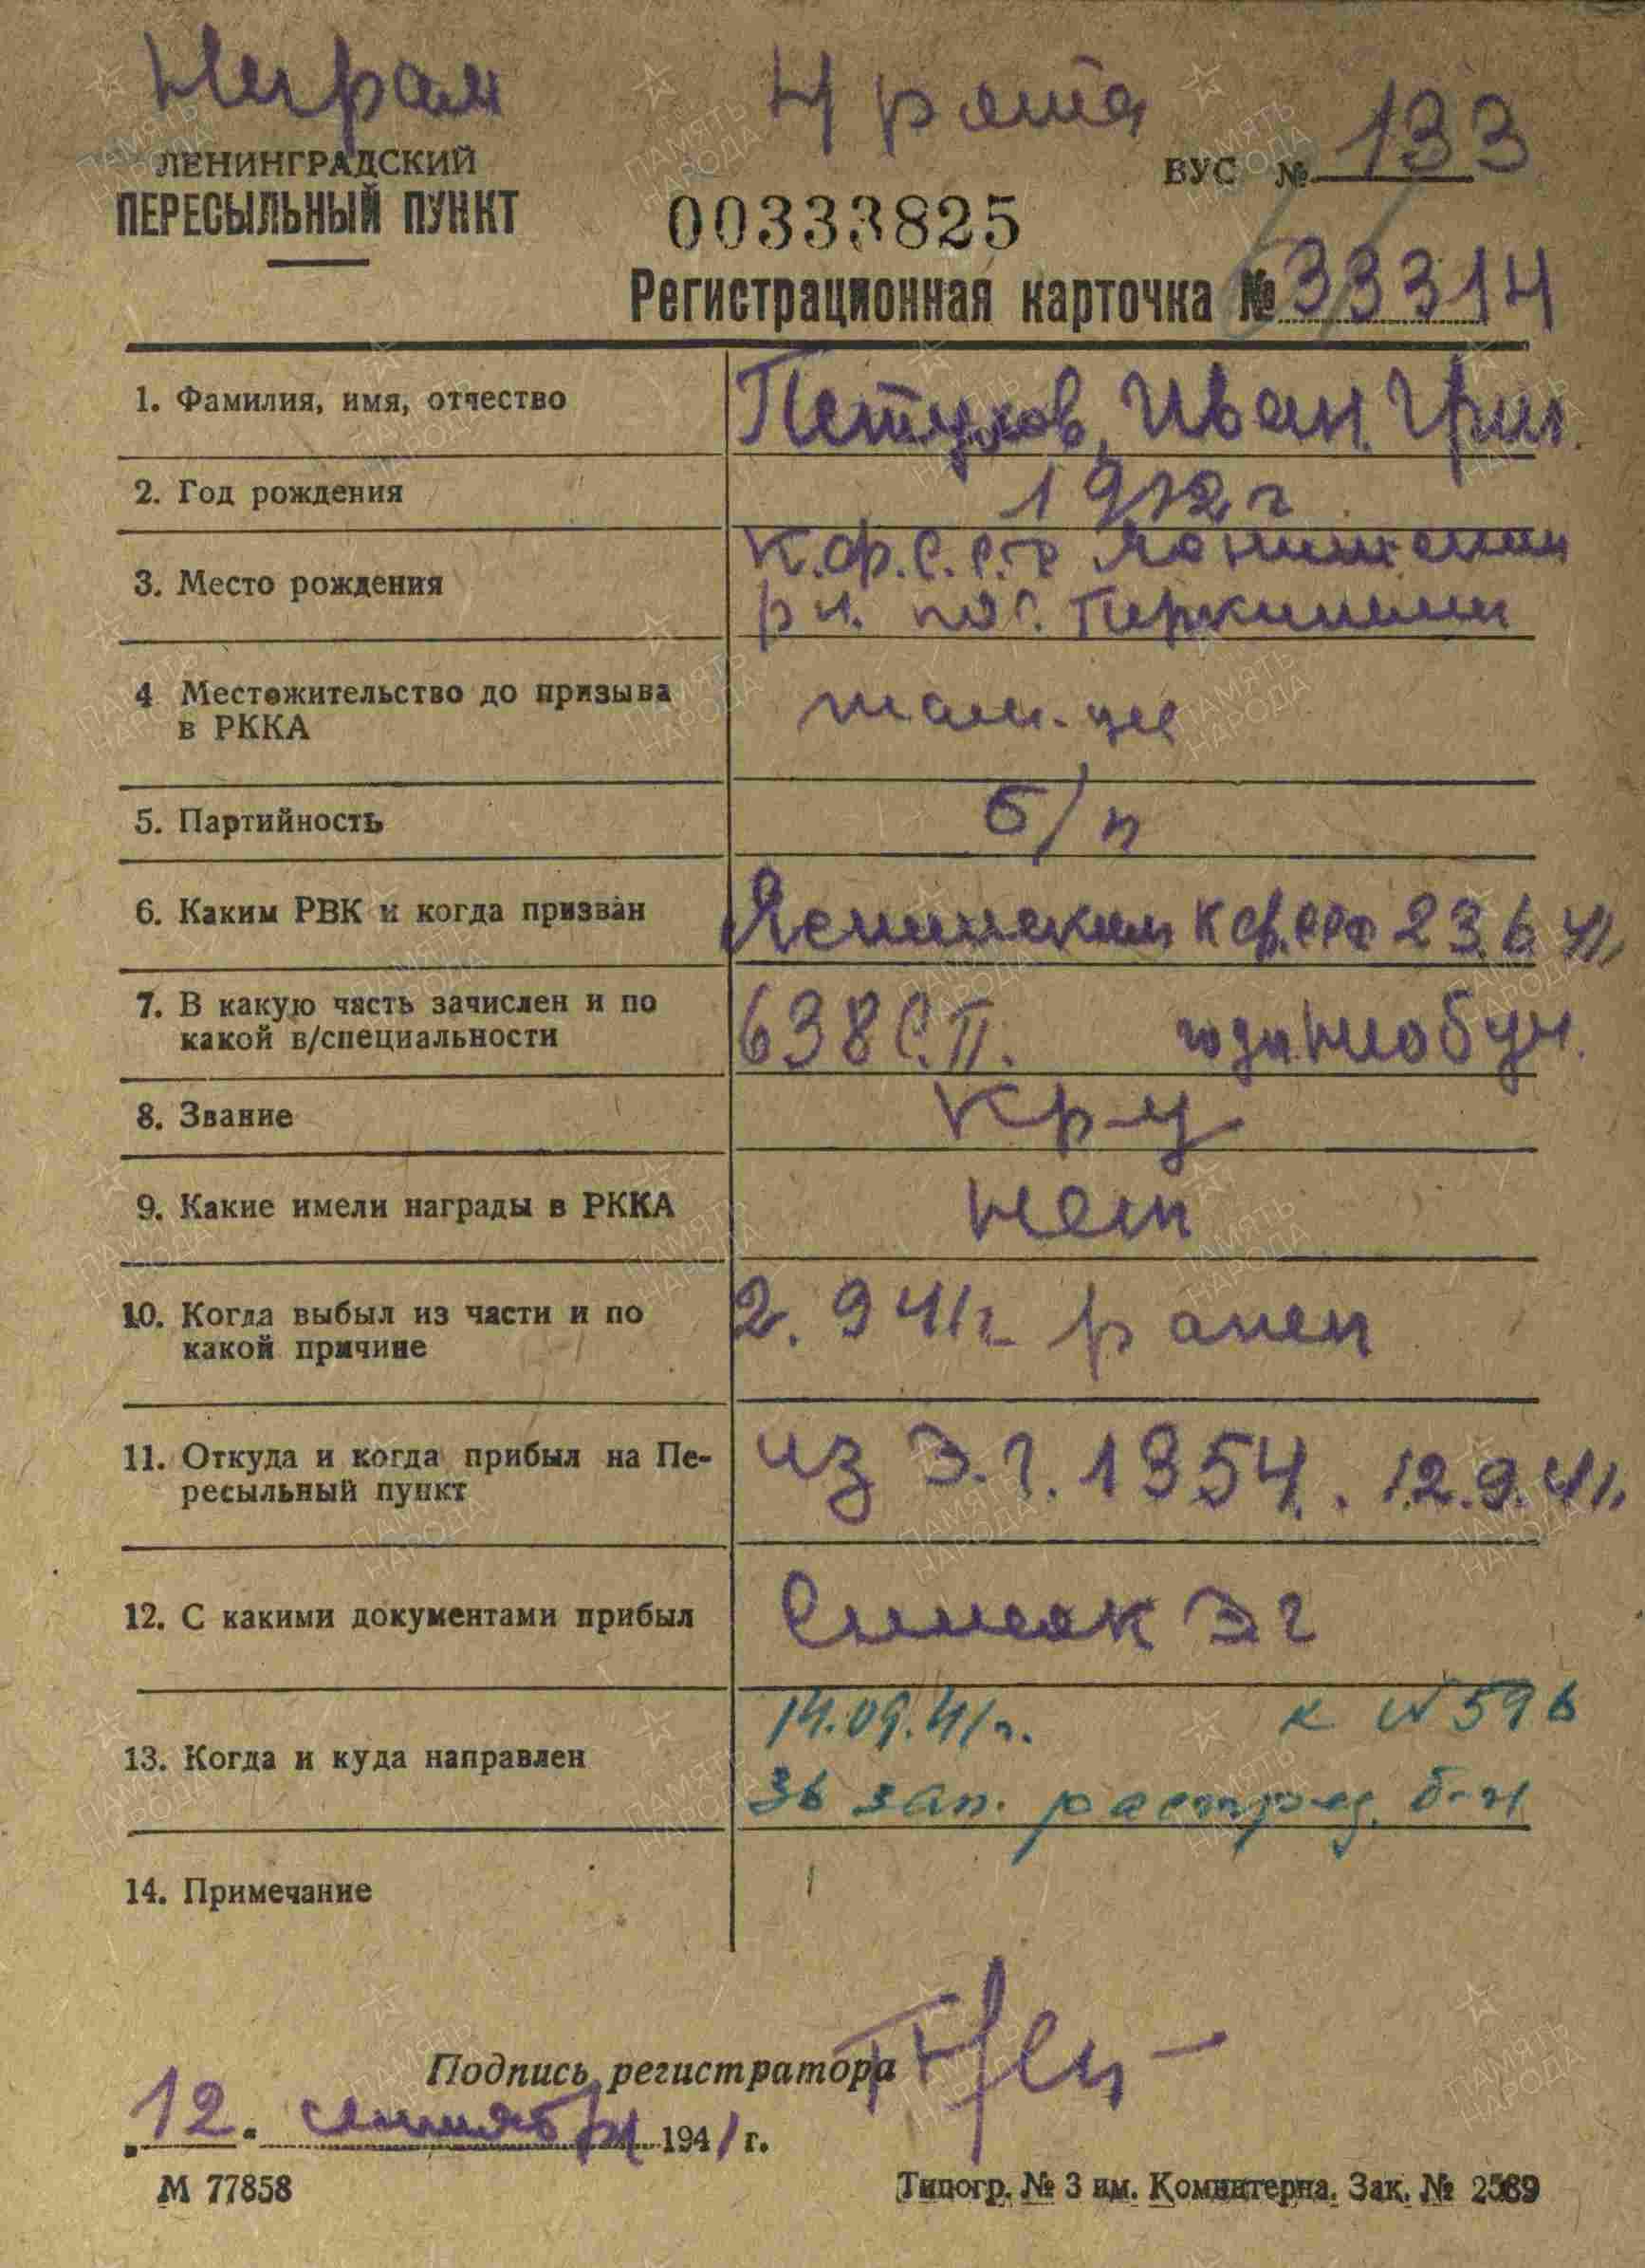 4 рота
ЛЕНИНГРАДСКИЙ
ПЕРЕСЫЛЬНЫЙ ПУНКТ
ВУС № 133
00333825
Регистрационная карточка № 33314
1. Фамилия, имя, отчество
Петухов, Иван. Григ.
2. Год рождения
1912 г
3. Место рождения
К.Ф.С.С.Р
р н.
4 Местожительство до призыва
в РККА
там-же
5. Партийность
б/п
6. Каким РВК и когда призван
КФ.ССР 23.6 41г
7. В какую часть зачислен и по
какой в/специальности
638 С.П.
8. Звание
Кр-ц
9. Какие имели награды в РККА
нет
10. Когда выбыл из части и по
какой причине
2. 9 41г ранен
11. Откуда и когда прибыл на Пе-
ресыльный пункт
из Э.Г. 1354. 12.9.41г.
12. С какими документами прибыл
Список ЭГ
13. Когда и куда направлен
14.09.41г. к № 596
36 зап. распред. б-н
14. Примечание
Подпись регистратора
12. сентября 1941 г.
М 77858
Типогр. № 3 им. Коминтерна. Зак. № 2569